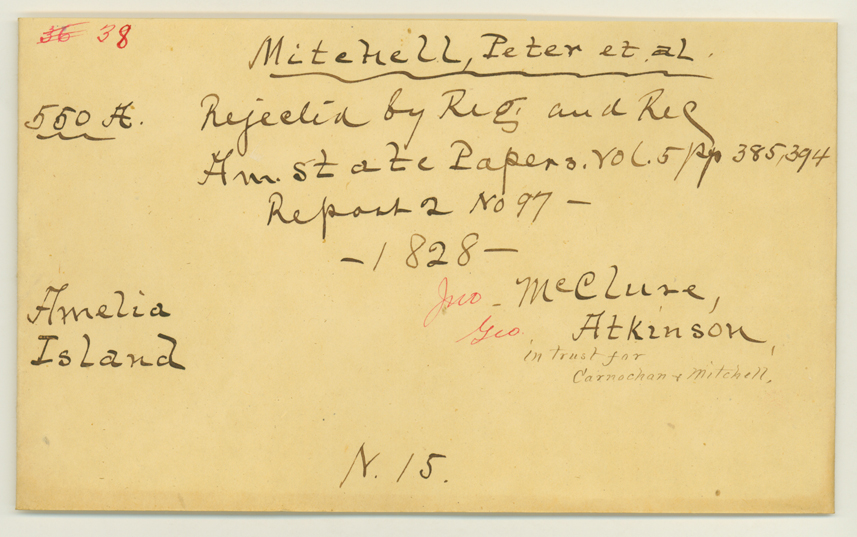 36 38
Mitchell, Peter et. al.
550 A. Rejected by Reg. and Rec
Am. State Papers. Vol. 5 pp 385,394
Report 2 No 97 —
— 1828 —
Amelia Jno - McClure,
Island Geo. Atkinson,
in trust for
Carnochan & Mitchell.
N. 15.